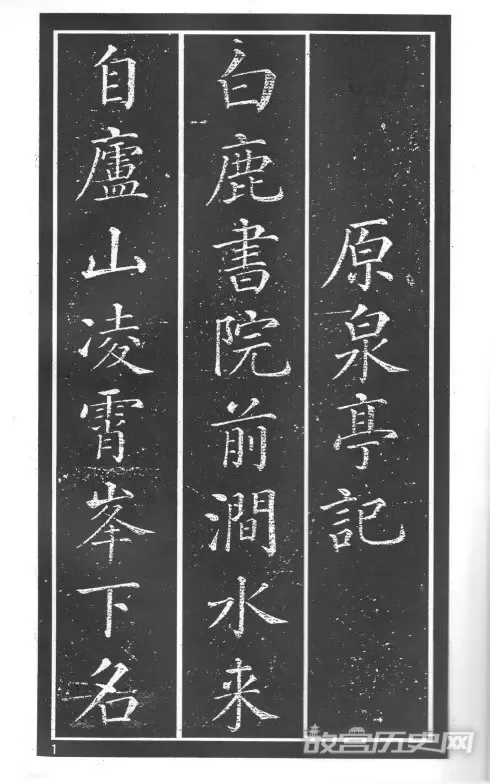 原泉亭記
白鹿書院前澗水来
自廬山凌霄峯下名
1
故宫历史网